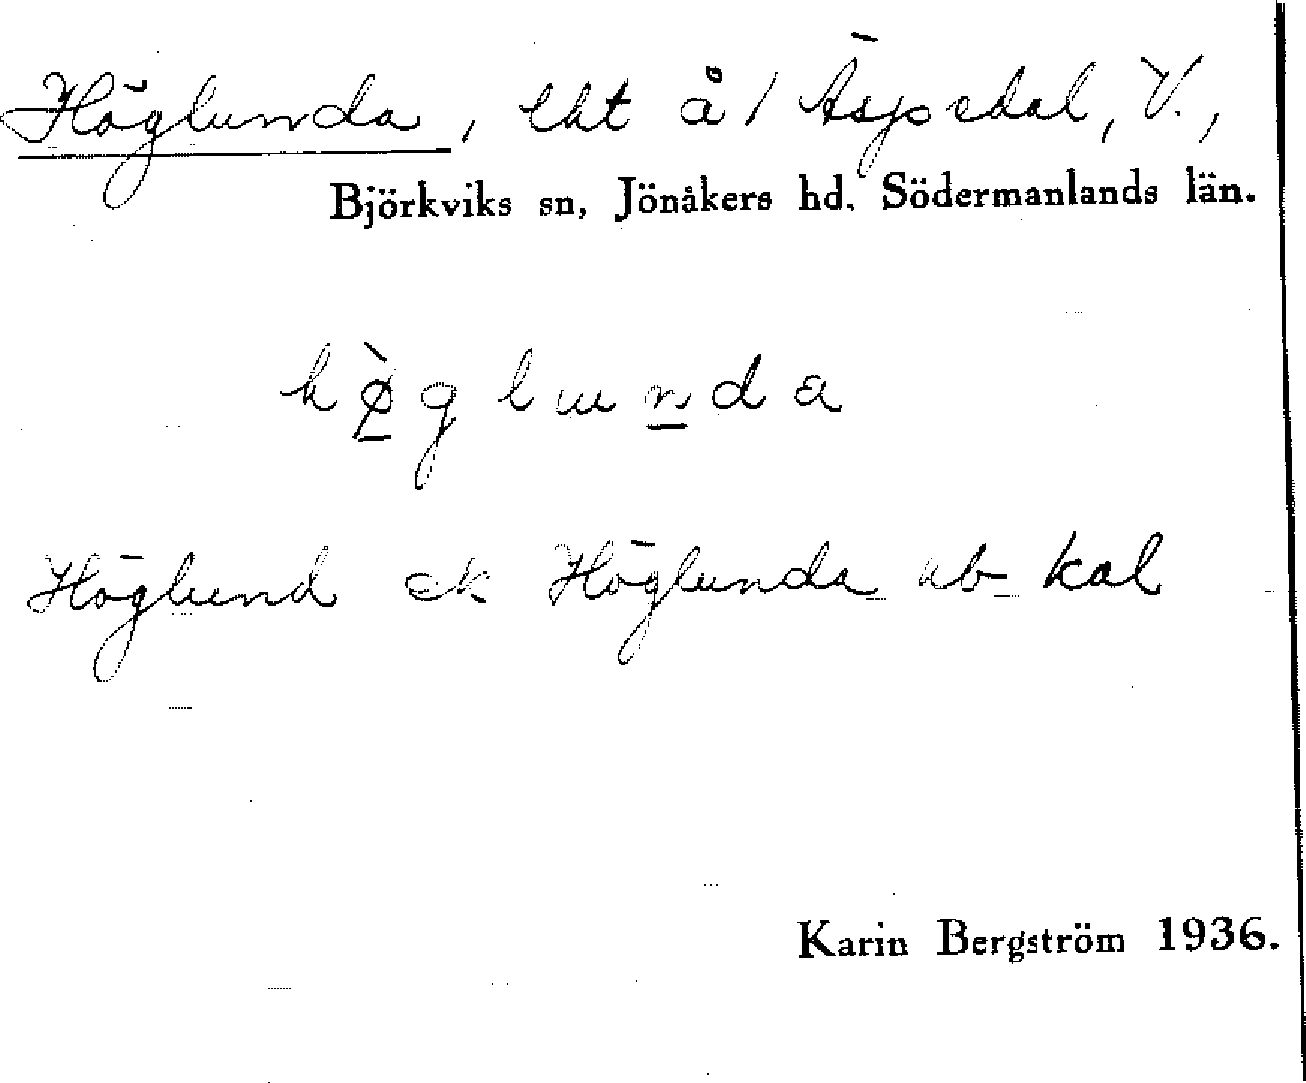 Höglunda, lht å/ Äspedal, V.,
Björkviks sn, Jönåkers hd. Södermanlands län.
hø̀glunda
Höglund ek Höglunda ab kal
Karin Bergström 1936.